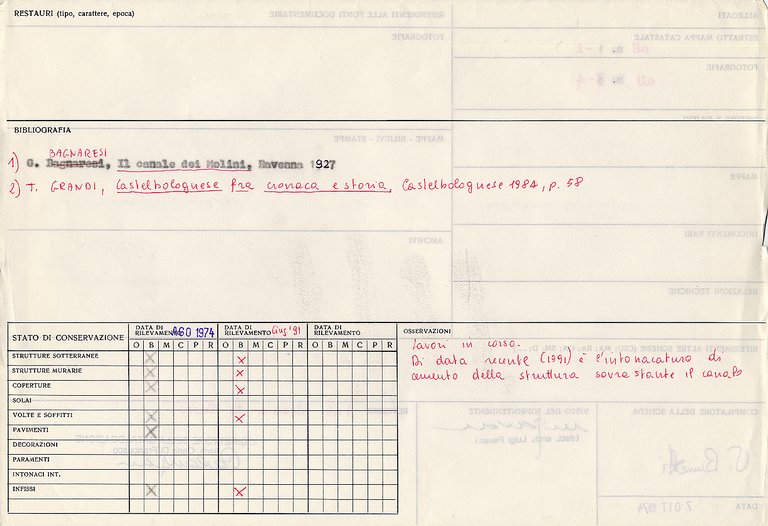 RESTAURI (tipo, carattere, epoca)
BIBLIOGRAFIA
BAGNARESI
1) G. Bagnaresi, Il canale dei Molini, Ravenna 1927
2) T. GRANDI, Castelbolognese fra cronaca e storia, Castelbolognese 1984, p. 58
STATO DI CONSERVAZIONE
DATA DI RILEVAMENTO AGO 1974
DATA DI RILEVAMENTO Giug '91
DATA DI RILEVAMENTO
O B M C P R O B M C P R O B M C P R
STRUTTURE SOTTERRANEE X X
STRUTTURE MURARIE X X
COPERTURE X X
SOLAI
VOLTE E SOFFITTI X X
PAVIMENTI X
DECORAZIONI
PARAMENTI
INTONACI INT.
INFISSI X X
OSSERVAZIONI
Lavori in corso.
Di data recente (1991) è l'intonacatura di
cemento della struttura sovrastante il canale
RIFERIMENTI ALLE FONTI DOCUMENTARIE
FOTOGRAFIE
ALLEGATI
ESTRATTO MAPPA CATASTALE
all n. 1-2
FOTOGRAFIE
all n. 3-4
MAPPE - RILIEVI - STAMPE
MAPPE
DOCUMENTI VARI
ARCHIVI
RELAZIONI TECNICHE
RIFERIMENTI ALTRE SCHEDE
COMPILATORE DELLA SCHEDA
VISTO DEL SOPRINTENDENTE
(dott. arch. Luigi Pavan)
DATA
7 OTT 1974